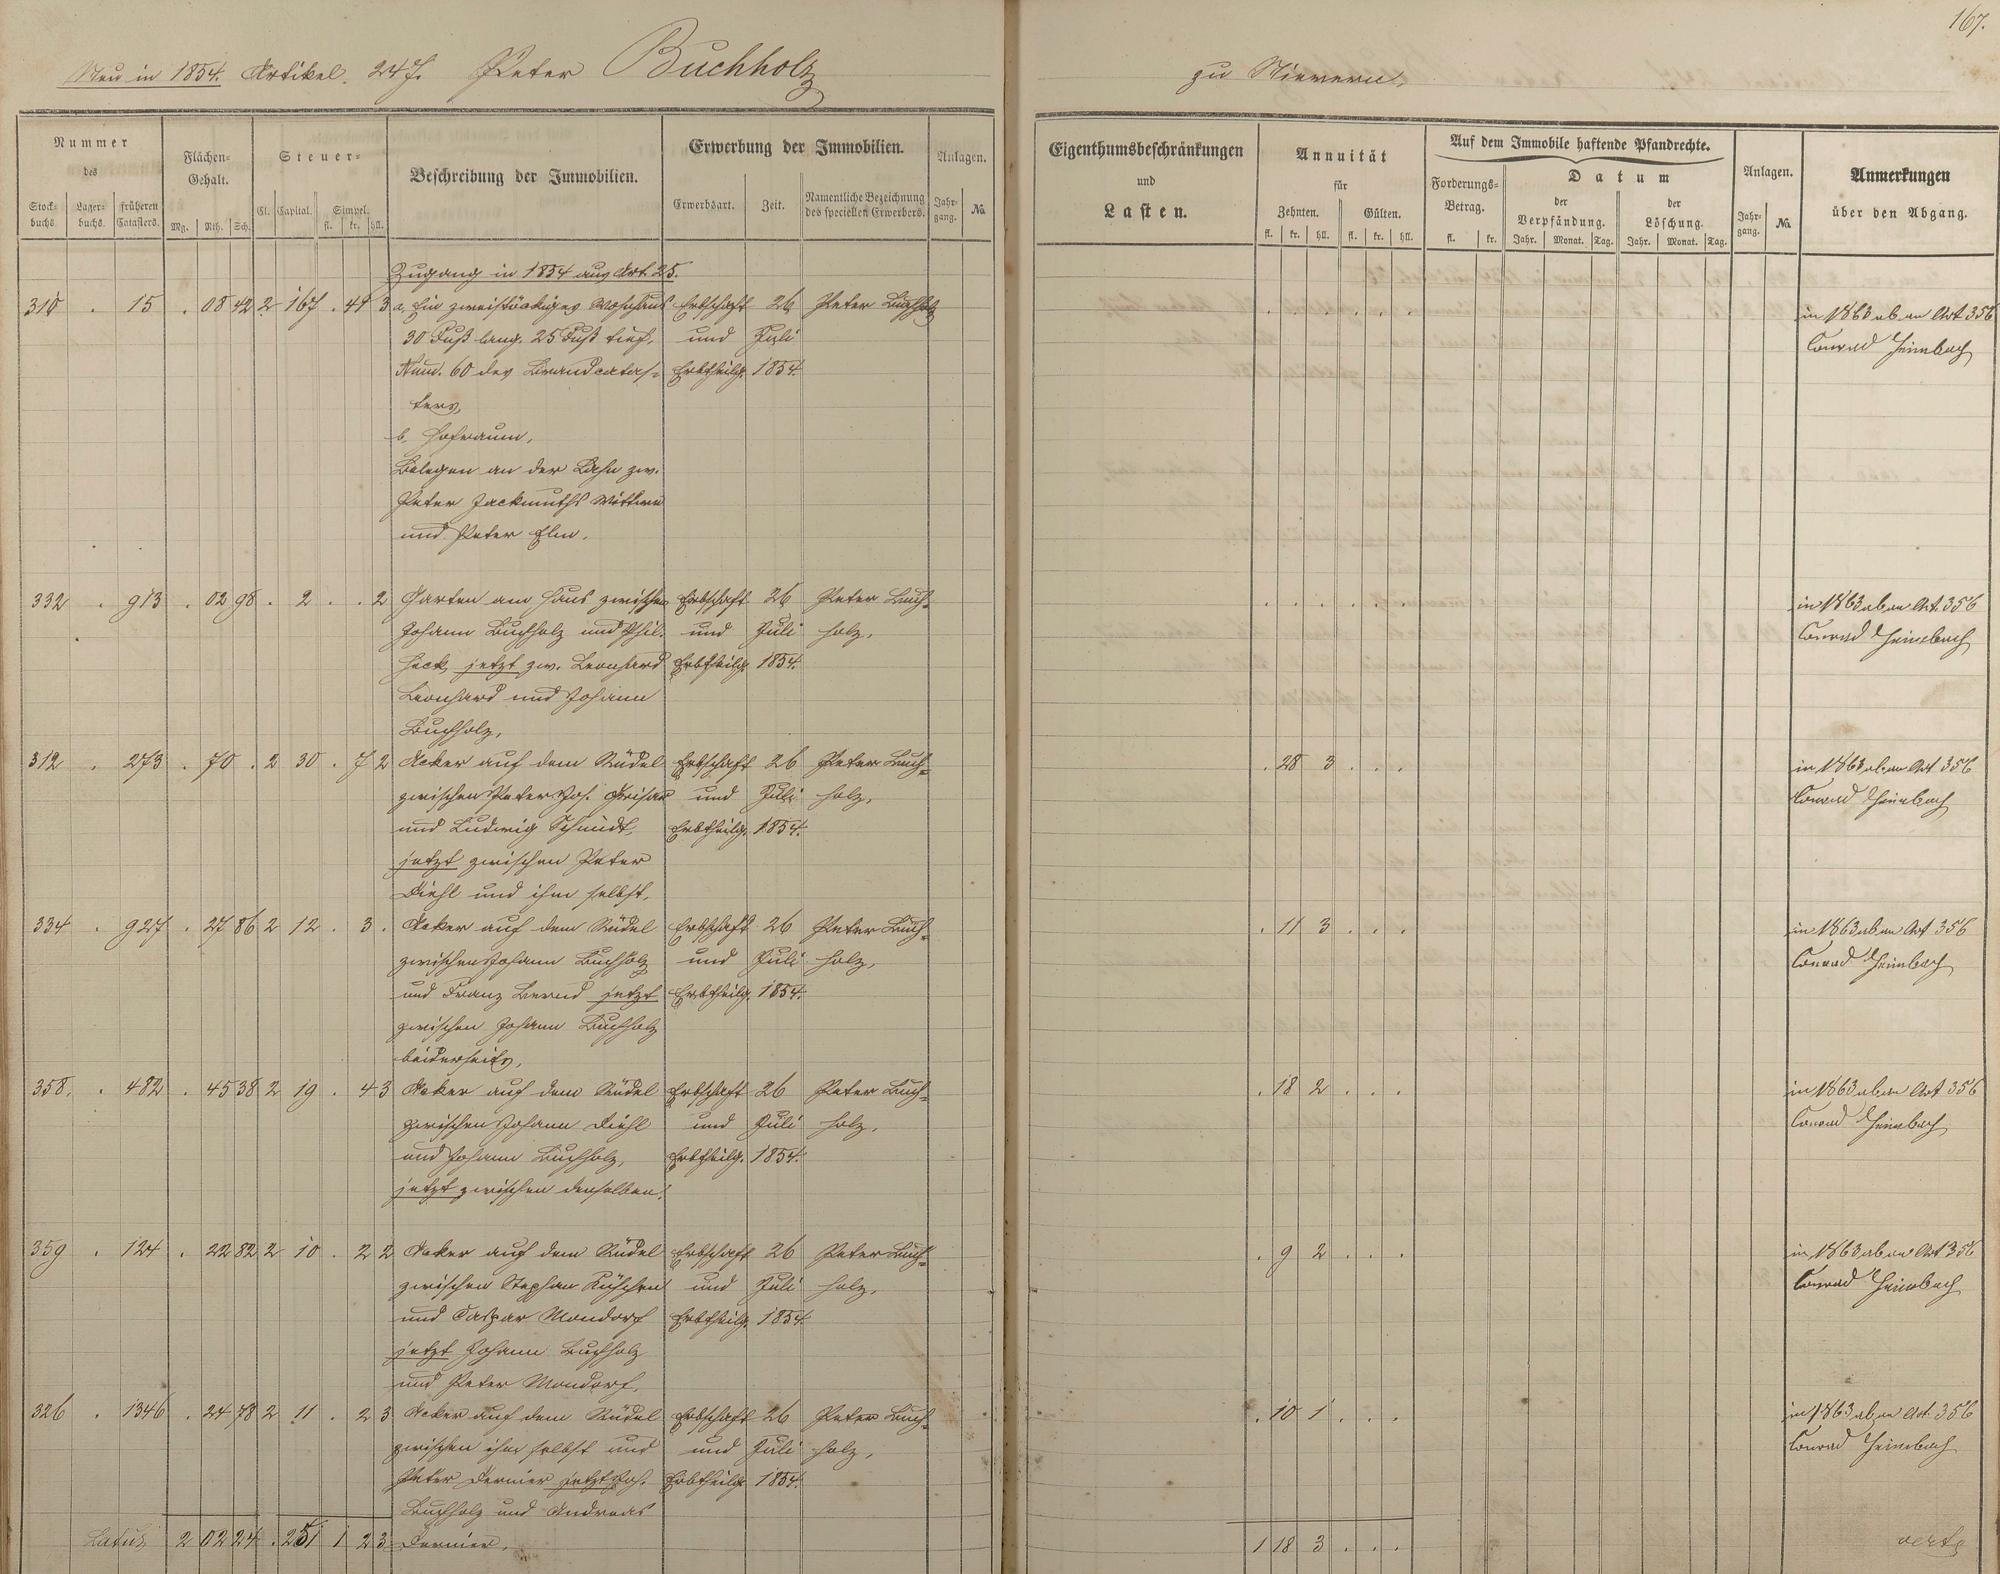 167.
Neu in 1854. Artikel. 247. Peter Buchholz
zu Nievern.
Nummer
des
Stock-
buchs.
Lager-
buchs.
früheren
Catasters.
Flächen-
Gehalt.
Mg. Rth. Sch.
Steuer-
Cl. Capital. Simpel.
fl. kr. hll.
Beschreibung der Immobilien.
Erwerbung der Immobilien.
Erwerbsart. Zeit. Namentliche Bezeichnung
des speciellen Erwerbers.
Anlagen.
Jahr-
gang. No.
Eigenthumsbeschränkungen
und
Lasten.
Annuität
für
Zehnten. Gülten.
fl. kr. hll. fl. kr. hll.
Auf dem Immobile haftende Pfandrechte.
Forderungs-
Betrag.
fl. kr.
Datum
der
Verpfändung.
Jahr. Monat. Tag.
der
Löschung.
Jahr. Monat. Tag.
Anlagen.
Jahr-
gang. No.
Anmerkungen
über den Abgang.
Zugang in 1854 aus Art. 25.
310 . 15 . 08 42 2 167 . 41 3 a, Ein zweistöckiges Wohnhaus Erbschaft 26 Peter Buchholz in 1863 ab an Art 356
30 Fuß lang. 25 Fuß tief, und Juli Conrad Heimbach
Num. 60 des Brandcatas- Erbtheilg. 1854.
ters,
b, Hofraum,
Belegen an der Lahn zw.
Peter Jackmuths Wittwe
und Peter Elm.
332 . 913 . 02 98 . 2 . . 2 Garten am Haus zwischen Erbschaft 26 Peter Buch- in 1863 ab an Art. 356
Johann Buchholz und Phil. und Juli holz, Conrad Heimbach
Heck, jetzt zw. Leonhard Erbtheilg. 1854.
Leonhard und Johann
Buchholz,
312 . 273 . 70 . 2 30 . 7 2 Acker auf dem Rüdel Erbschaft 26 Peter Buch- . 28 3 . . . in 1863 ab an Art 356
zwischen Peter Jos. Grisar und Juli holz, Conrad Heimbach
und Ludwig Schmidt, Erbtheilg. 1854.
jetzt zwischen Peter
Diehl und ihm selbst,
334 . 927 . 27 86 2 12 . 3 . Acker auf dem Rüdel Erbschaft 26 Peter Buch- . 11 3 . . . in 1863 ab an Art 356
zwischen Johann Buchholz und Juli holz, Conrad Heimbach
und Franz Bernd jetzt Erbtheilg. 1854.
zwischen Johann Buchholz
beiderseits,
358. . 482 . 45 38 2 19 . 4 3 Acker auf dem Rüdel Erbschaft 26 Peter Buch- . 18 2 . . . in 1863 ab an Art 356
zwischen Johann Diehl und Juli holz, Conrad Heimbach
und Johann Buchholz, Erbtheilg. 1854.
jetzt zwischen denselben.
359 . 124 . 22 82 2 10 . 2 2 Acker auf dem Rüdel Erbschaft 26 Peter Buch- . 9 2 . . . in 1863 ab an Art 356
zwischen Stephan und Juli holz, Conrad Heimbach
und Caspar Mondorf Erbtheilg. 1854.
jetzt Johann Buchholz
und Peter Mondorf,
326 . 1346 . 24 78 2 11 . 2 3 Acker auf dem Rüdel Erbschaft 26 Peter Buch- . 10 1 . . . in 1863 ab an Art. 356
zwischen ihm selbst und und Juli holz, Conrad Heimbach
Peter Dernier jetzt Joh. Erbtheilg. 1854.
Buchholz und Andreas
Latus 2 02 24 . 251 1 2 3 Dernier. 1 18 3 . . . vert.